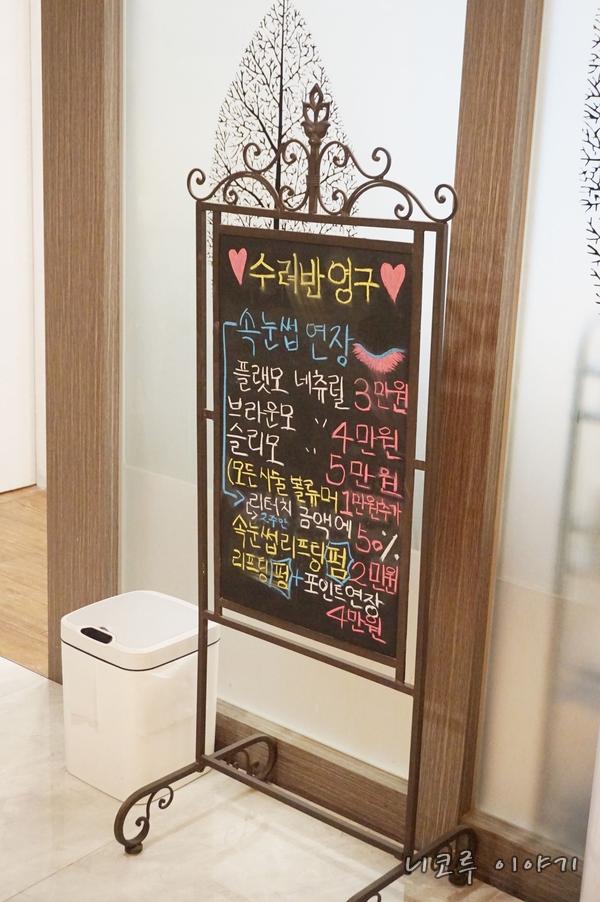 수려반영구
속눈썹 연장
플랫모 네츄럴 3만원
브라운모 〃 4만원
슬리모 〃 5만원
(모든 시술 볼류머 1만원추가
→ 리터치 금액에 50%
→ 2주안
속눈썹 리프팅펌 2만원
리프팅펌 + 포인트연장
4만원
니코루 이야기